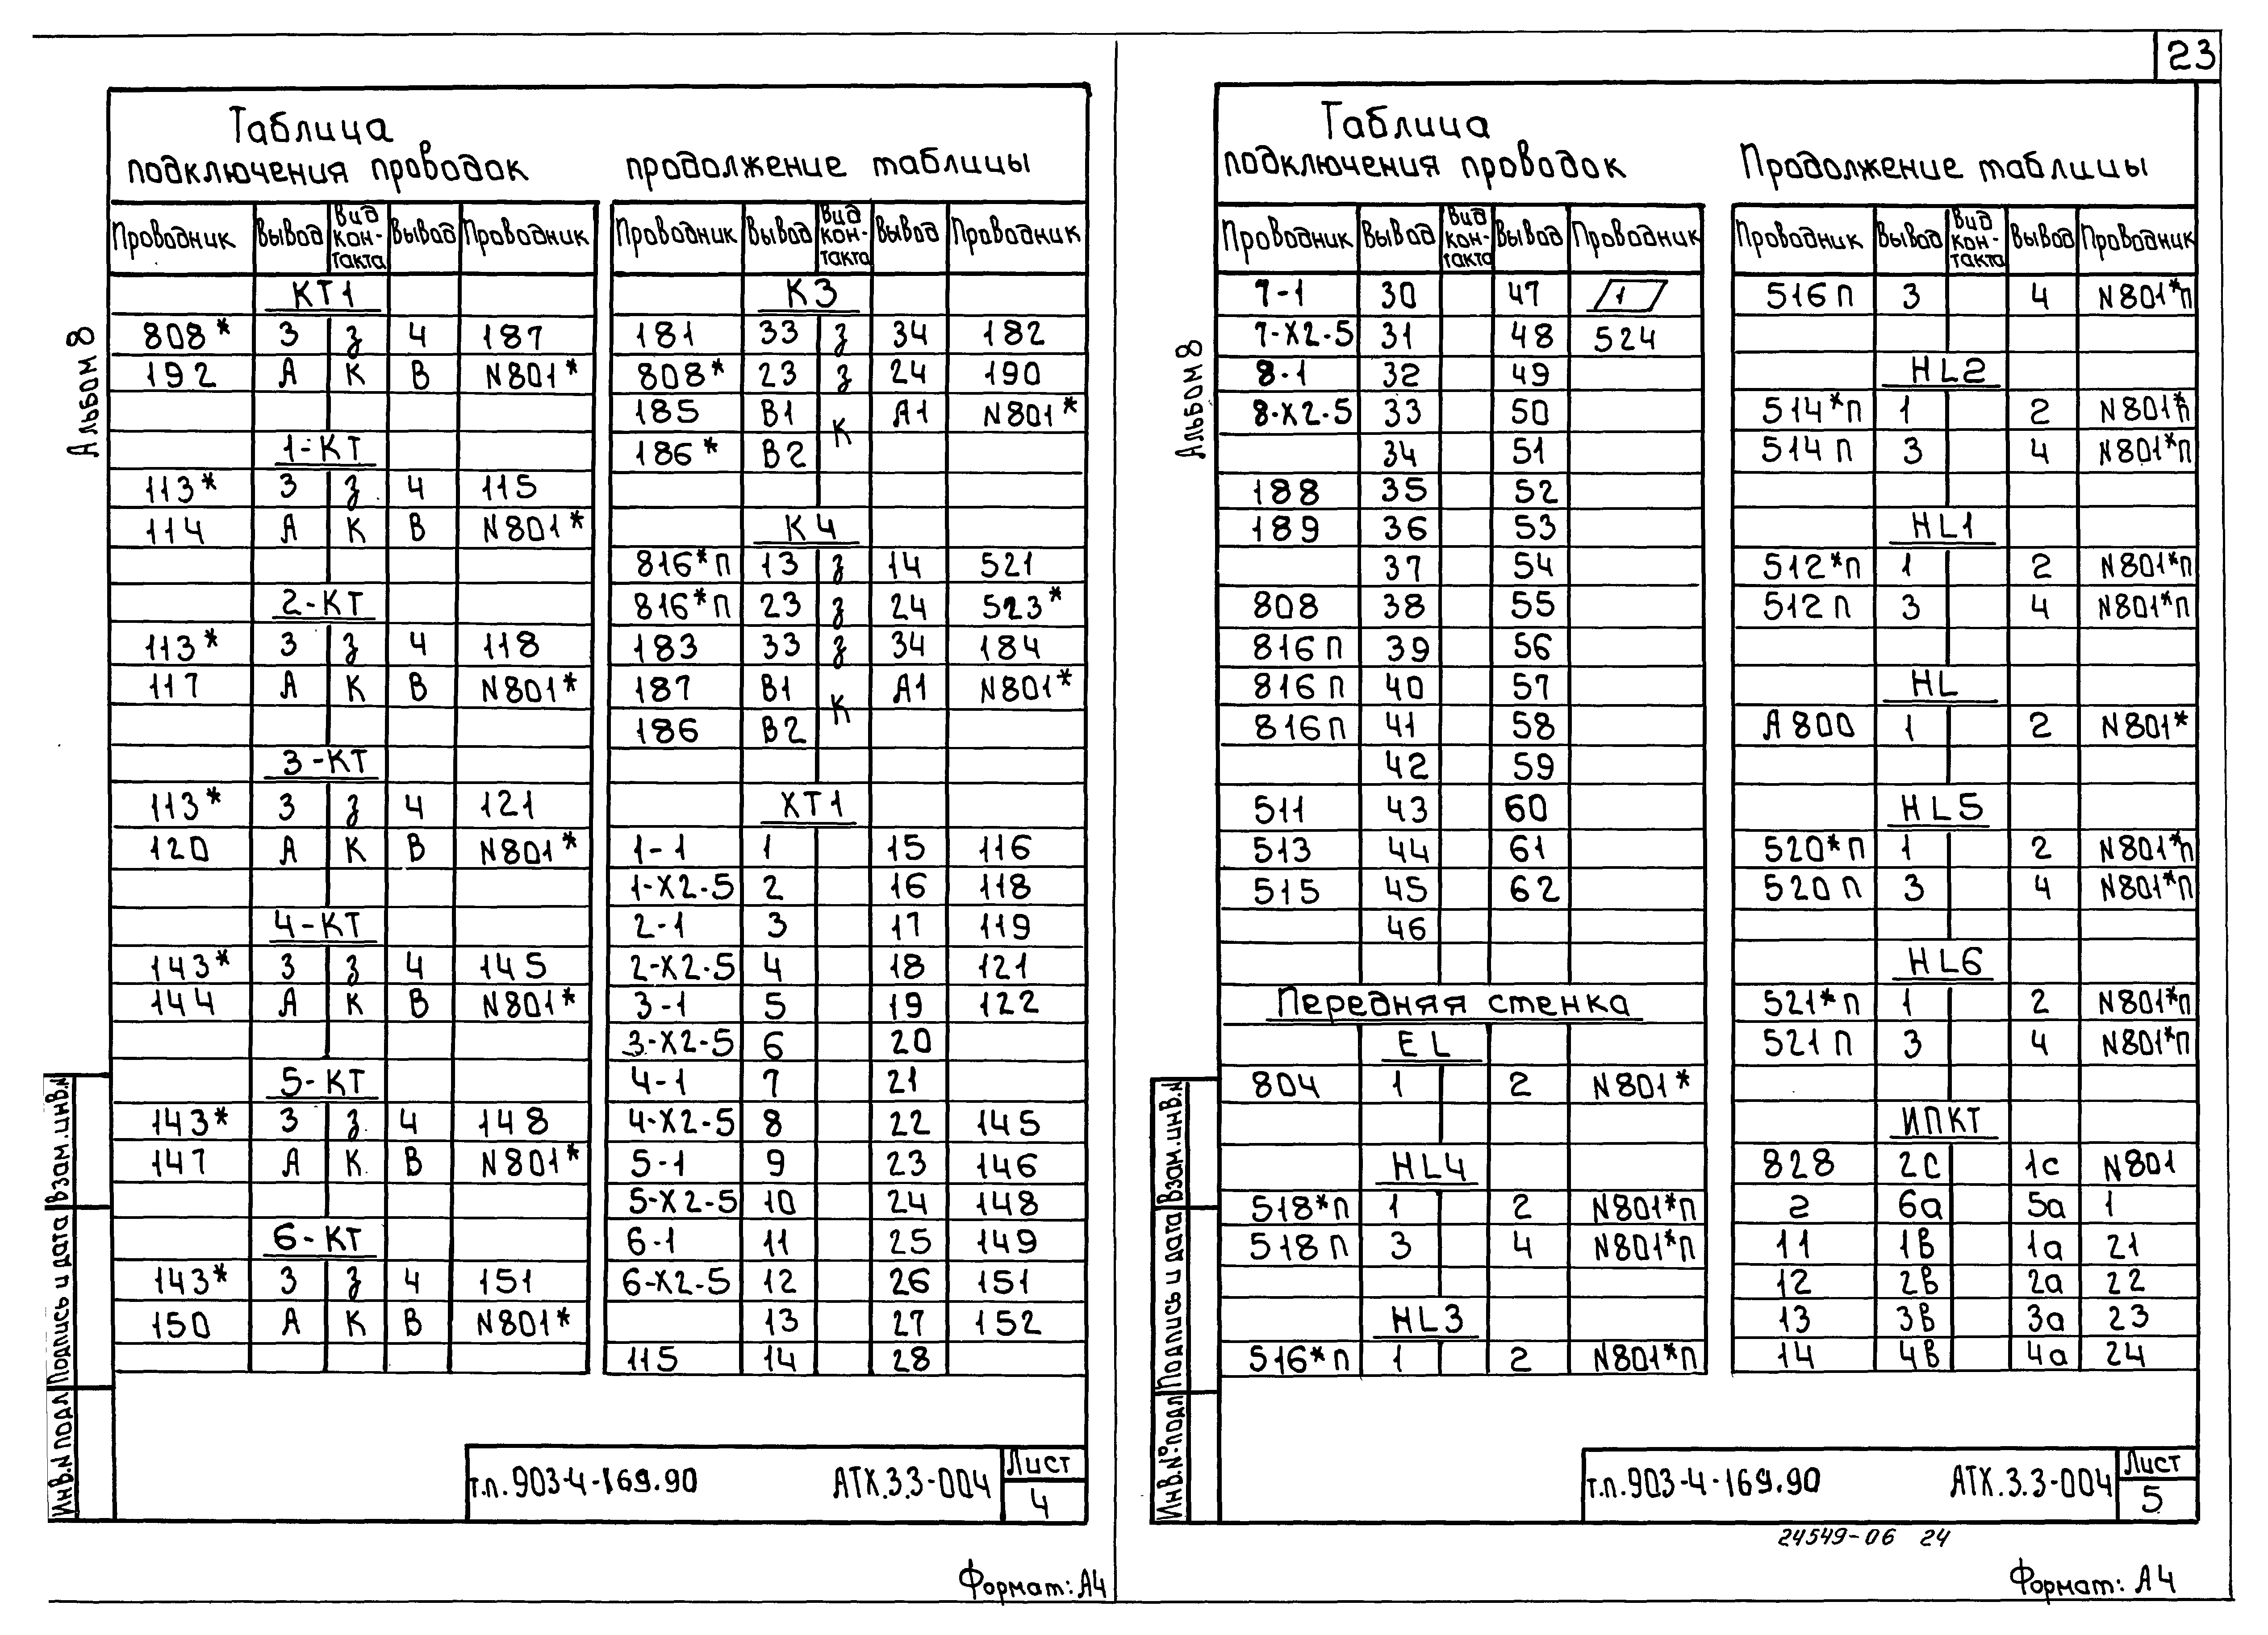 23
Альбом 8
Таблица
подключения проводок
Проводник Вывод Вид контакта Вывод Проводник
КТ1
808* 3 з 4 187
192 А К В N801*
1-КТ
113* 3 з 4 115
114 А К В N801*
2-КТ
113* 3 з 4 118
117 А К В N801*
3-КТ
113* 3 з 4 121
120 А К В N801*
4-КТ
143* 3 з 4 145
144 А К В N801*
5-КТ
143* 3 з 4 148
147 А К В N801*
6-КТ
143* 3 з 4 151
150 А К В N801*
продолжение таблицы
Проводник Вывод Вид кон-такта Вывод Проводник
К3
181 33 з 34 182
808* 23 з 24 190
185 В1 К А1 N801*
186* В2
К4
816*П 13 з 14 521
816*П 23 з 24 523*
183 33 з 34 184
187 В1 К А1 N801*
186 В2
ХТ1
1-1 1 15 116
1-Х2-5 2 16 118
2-1 3 17 119
2-Х2-5 4 18 121
3-1 5 19 122
3-Х2-5 6 20
4-1 7 21
4-Х2-5 8 22 145
5-1 9 23 146
5-Х2-5 10 24 148
6-1 11 25 149
6-Х2-5 12 26 151
13 27 152
115 14 28
Инв.N подл Подпись и дата Взам.инв.N
т.п.903-4-169.90 АТХ.3.3-004 Лист
4
Формат: А4
Альбом 8
Таблица
подключения проводок
Проводник Вывод Вид кон-такта Вывод Проводник
7-1 30 47 1
7-Х2-5 31 48 524
8-1 32 49
8-Х2-5 33 50
34 51
188 35 52
189 36 53
37 54
808 38 55
816П 39 56
816П 40 57
816П 41 58
42 59
511 43 60
513 44 61
515 45 62
46
Передняя стенка
EL
804 1 2 N801*
HL4
518*П 1 2 N801*П
518П 3 4 N801*П
HL3
516*П 1 2 N801*П
Продолжение таблицы
Проводник Вывод Вид кон-такта Вывод Проводник
516П 3 4 N801*П
HL2
514*П 1 2 N801*П
514П 3 4 N801*П
HL1
512*П 1 2 N801*П
512П 3 4 N801*П
HL
А800 1 2 N801*
HL5
520*П 1 2 N801*П
520П 3 4 N801*П
HL6
521*П 1 2 N801*П
521П 3 4 N801*П
ИПКТ
828 2с 1с N801
2 6а 5а 1
11 1в 1а 21
12 2в 2а 22
13 3в 3а 23
14 4в 4а 24
Инв.№подл Подпись и дата Взам.инв.N
т.п.903-4-169.90 АТХ.3.3-004 Лист
5
24549-06 24
Формат: А4